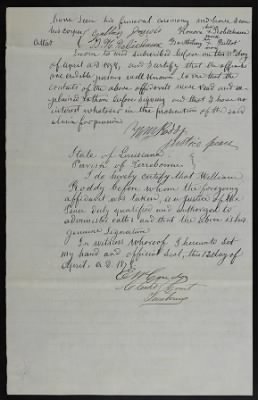 have seen his funeral ceremony and have seen
his corpse
Attest
Sworn to and subscribed before me this day
of April A.D. 18 and certify that the affiants
are credible persons well known to me that the
contents of the above affidavits were read and ex-
plained to them before signing and that I have no
interest whatever in the prosecution of the said
claim for pension
Wm Roddy
Justice peace
State of Louisiana
Parish of Terrebonne
I do hereby certify that William
Roddy before whom the foregoing
affidavit was taken, is a Justice of the
Peace duly qualified and authorized to
administer oaths and that the above is his
genuine signature
In witness whereof I hereunto set
my hand and official seal, this 12 day of
April A.D. 18
Clerk Court